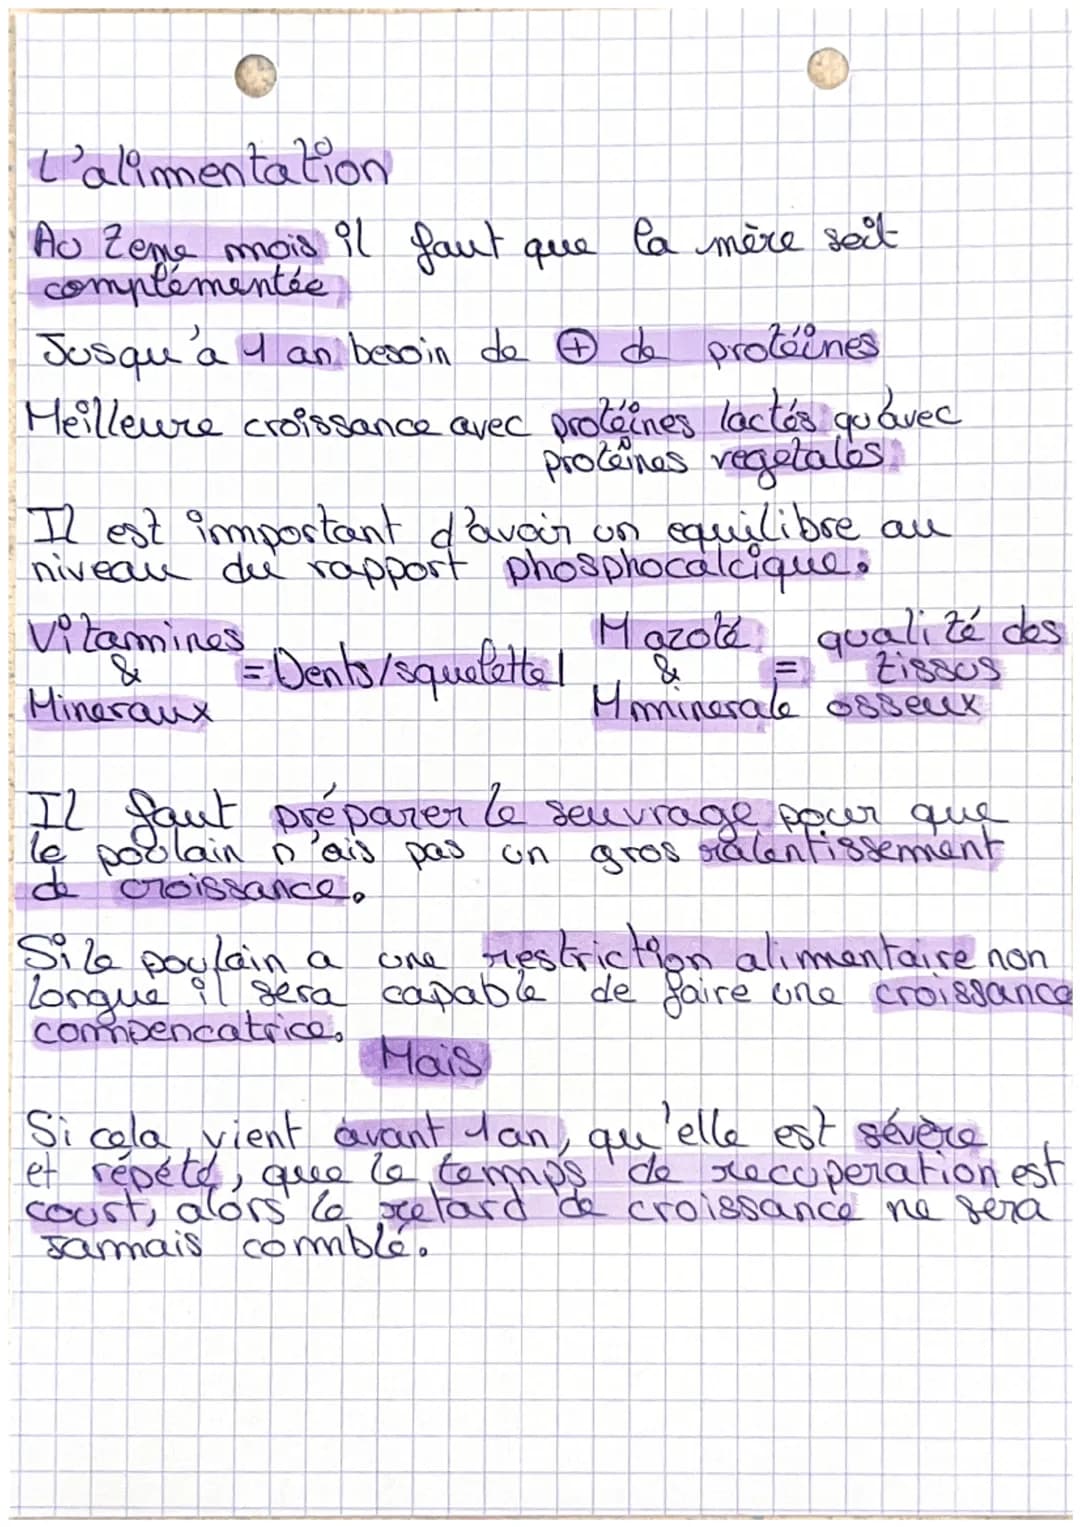 L'alimentation
Au 2eme mois il faut que la mère soit
complémentée
Jusqu'a 1 an besoin de + de protéines
Meilleure croissance avec protéines lactés qu'avec
protéines vegetales
Il est important d'avoir un equilibre au
niveau du rapport phosphocalcique.
Vitamines
& = Dents/squelette
Mineraux
M azoté qualité des
& = tissus
M minerale osseux
Il faut préparer le seuvrage pour que
le poulain n'ais pas un gros ralentissement
de croissance.
Si le poulain a une restriction alimentaire non
longue il sera capable de faire une croissance
compencatrice.
Mais
Si cela vient avant 1an, qu'elle est sévère
et répété, que le temps de recuperation est
court, alors le retard de croissance ne sera
jamais comblé.